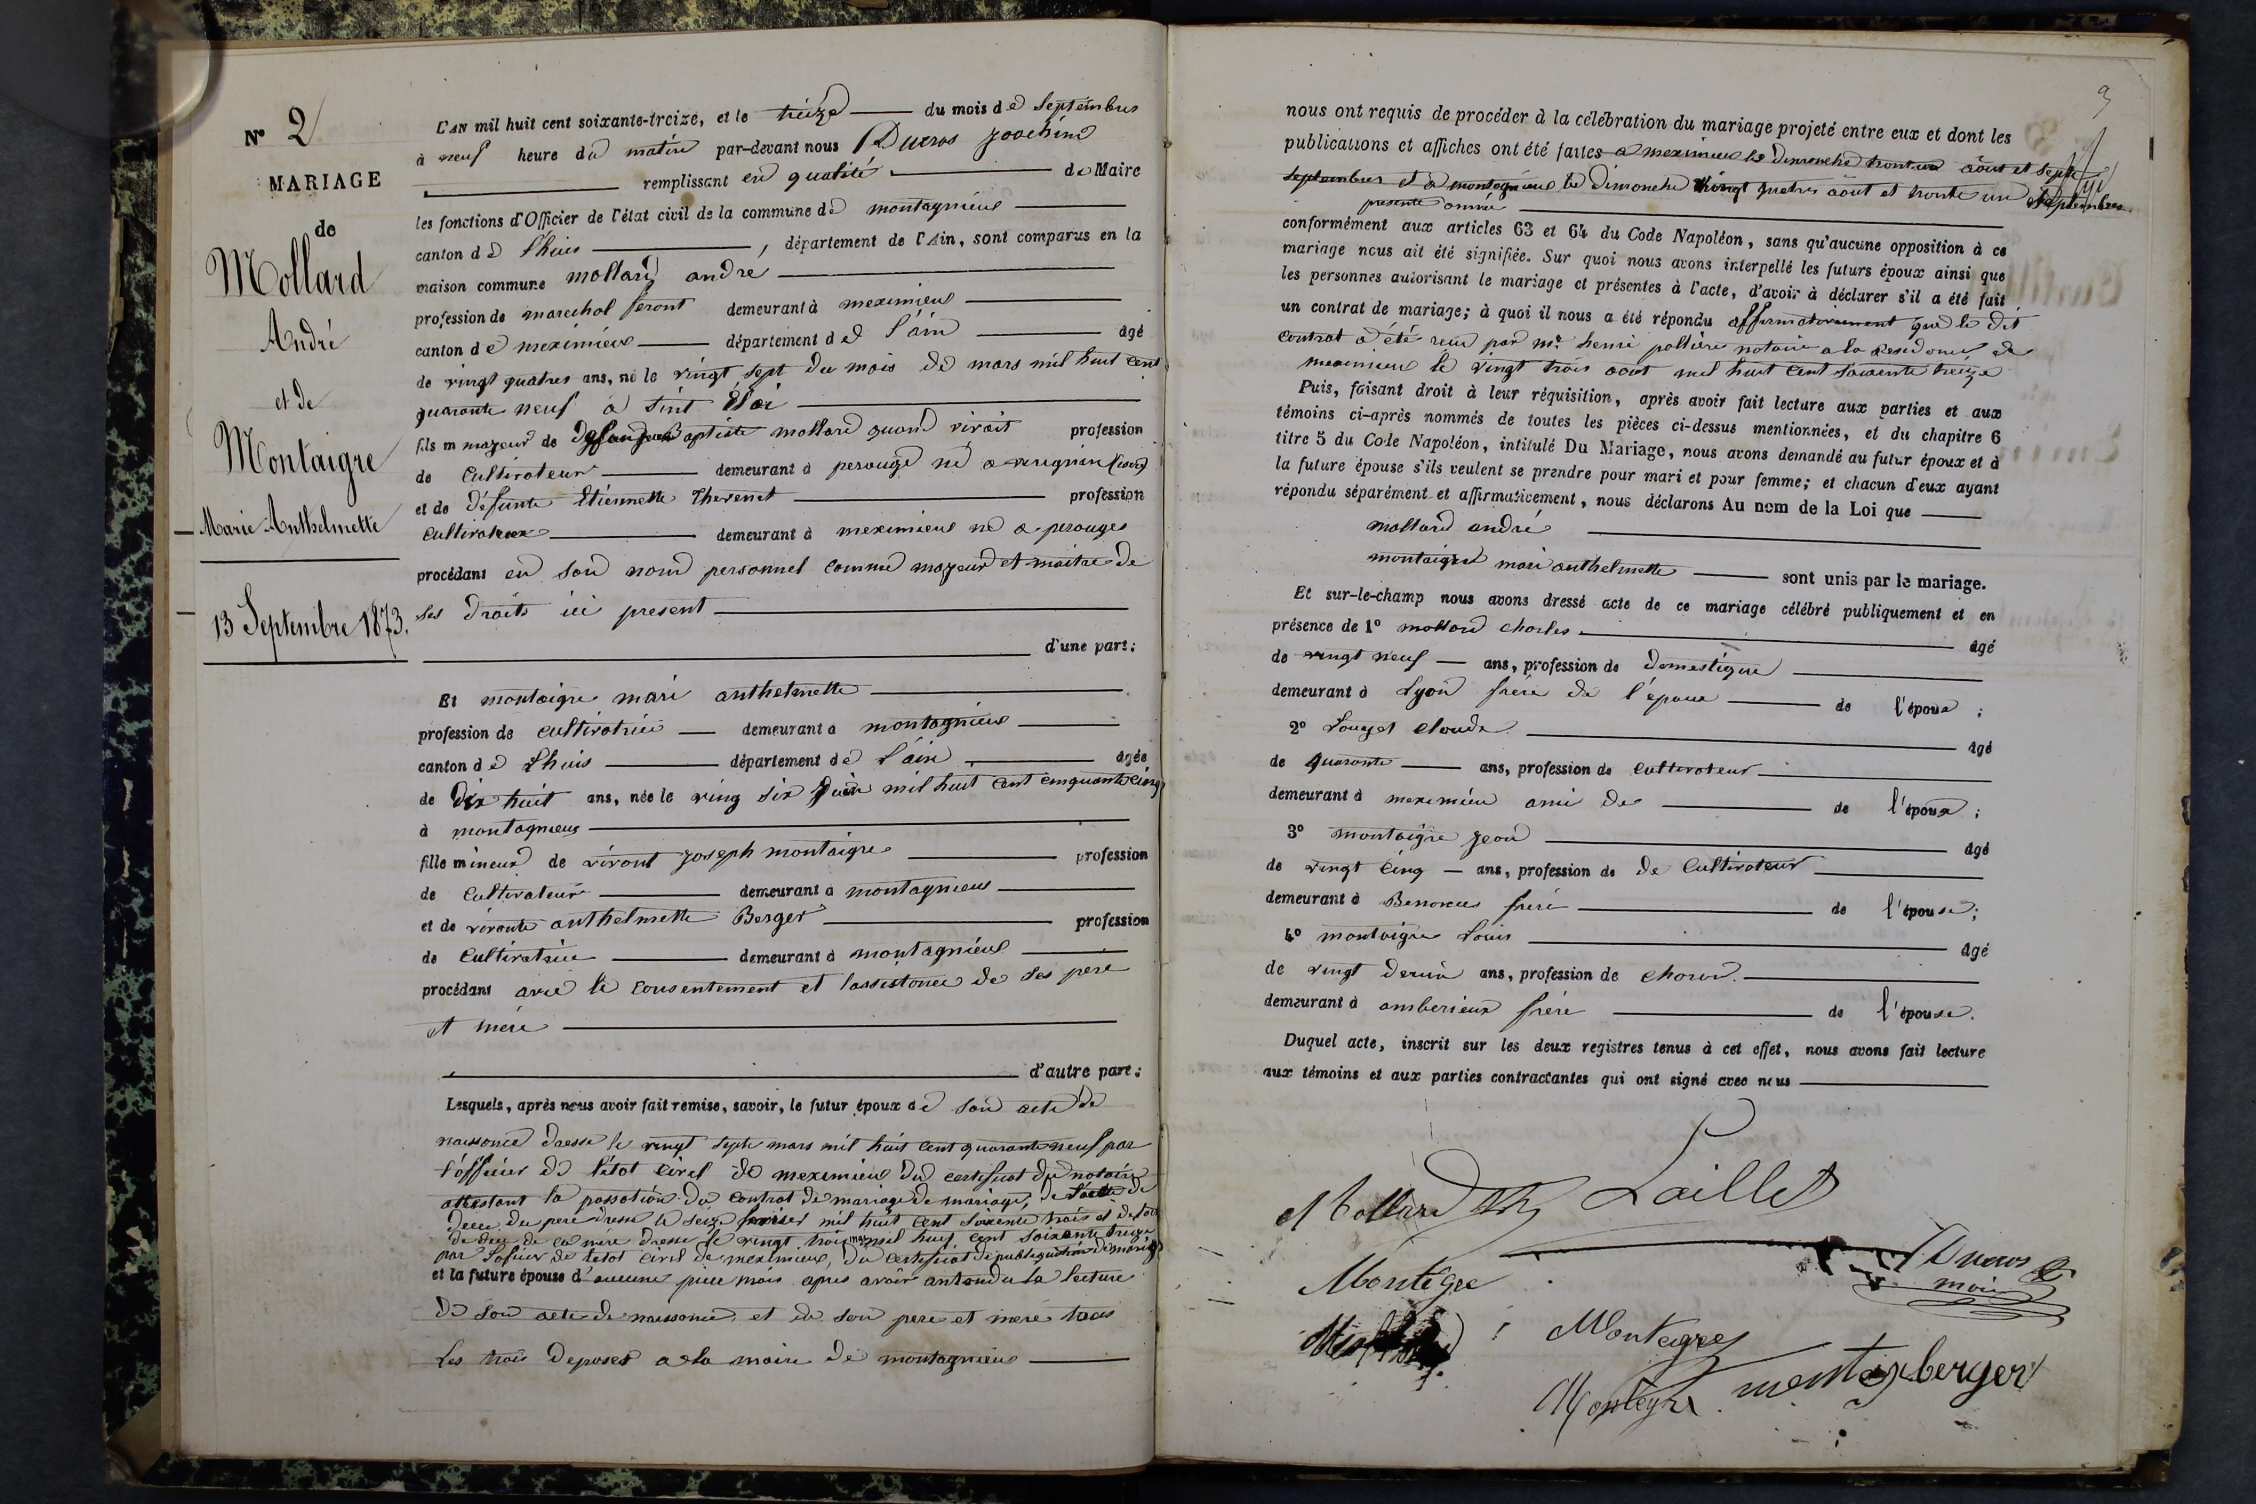 N° 2
MARIAGE
de
Mollard
André
et de
Montaigre
Marie Anthelmette
13 Septembre 1873.
L'AN mil huit cent soixante-treize, et le treize du mois de Septembre
à neuf heure du matin par-devant nous Ducros Joachim
remplissant en qualité de Maire
les fonctions d'Officier de l'état civil de la commune de montagnieux
canton de Lhuis, département de l'Ain, sont comparus en la
maison commune mollard andré
profession de marechal feront demeurant à meximieux
canton de meximieux département de l'ain âgé
de vingt quatres ans, né le vingt sept du mois de mars mil huit cent
quarante neuf à sint Eloi
fils m majeur de Baptiste mollard quand vivait profession
de Cultivateur demeurant à perouge né a
et de défunte Etiennette Thevenet profession
cultivateur demeurant à meximieux né a perouges
procédant en son nom personnel comme majeur et maitre de
ses droits ici present
d'une part;
Et montaigre mari anthelmette
profession de cultivatrice demeurant à montagnieu
canton de Lhuis département de l'ain âgée
de dix huit ans, née le ving six juin mil huit cent cinquante cinq
à montagnieux
fille mineur de vivant joseph montaigre profession
de cultivateur demeurant à montagnieux
et de vivante anthelmette Berger profession
de Cultivatrice demeurant à montagnieux
procédant avec le consentement et lassistance de ses pere
et mère
d'autre part;
Lesquels, après nous avoir fait remise, savoir, le futur époux de son acte de
naissance dresse le vingt septe mars mil huit cent quarante neuf par
l'officier de l'état civil de meximieu du certificat du notaire
attestant la passation du contrat de mariage de mariage, de l'acte de
dece du pere dresse le seize fevrier mil huit cent soixente trois et de
de dece de la mere dresse le vingt trois mai mil huit cent soixante treize
par lofficier de letat civil de meximieux, du certificat de publiquation de mariage
et la future épouse d'aucune piece mais apres avoir antendu la lecture
de son acte de naissance et de son pere et mere tous
les trois deposes a la mairie de montagnieu
nous ont requis de procéder à la célébration du mariage projeté entre eux et dont les
publications et affiches ont été faites a meximieu le dimanche trentun août et septe
septembre et à montagnieu le dimanche vingt quatre août et trente un septembre
presente année
conformément aux articles 63 et 64 du Code Napoléon, sans qu'aucune opposition à ce
mariage nous ait été signifiée. Sur quoi nous avons interpellé les futurs époux ainsi que
les personnes autorisant le mariage et présentes à l'acte, d'avoir à déclarer s'il a été fait
un contrat de mariage; à quoi il nous a été répondu affirmativement que le dit
contrat a été reçu par me henri notaire a la residence de
meximieu le vingt trois aout mil huit cent soixente treize
Puis, faisant droit à leur réquisition, après avoir fait lecture aux parties et aux
témoins ci-après nommés de toutes les pièces ci-dessus mentionnées, et du chapitre 6
titre 5 du Code Napoléon, intitulé Du Mariage, nous avons demandé au futur époux et à
la future épouse s'ils veulent se prendre pour mari et pour femme; et chacun d'eux ayant
répondu séparément et affirmativement, nous déclarons Au nom de la Loi que
mollard andré
montaigre mari anthelmette sont unis par le mariage.
Et sur-le-champ nous avons dressé acte de ce mariage célébré publiquement et en
présence de 1° mollard charles âgé
de vingt neuf ans, profession de domestique
demeurant à Lyon frère de l'époux de l'époux;
2° Claude âgé
de quarante ans, profession de cultivateur
demeurant à meximieu ami de de l'époux;
3° montaigre jean âgé
de vingt cinq ans, profession de de Cultivateur
demeurant à frère de l'épouse;
4° montaigre Louis âgé
de vingt ans, profession de
demeurant à amberieux frère de l'épouse.
Duquel acte, inscrit sur les deux registres tenus à cet effet, nous avons fait lecture
aux témoins et aux parties contractantes qui ont signé avec nous
Mollard
Ducros
Montegre
Montegre
Montegre
berger